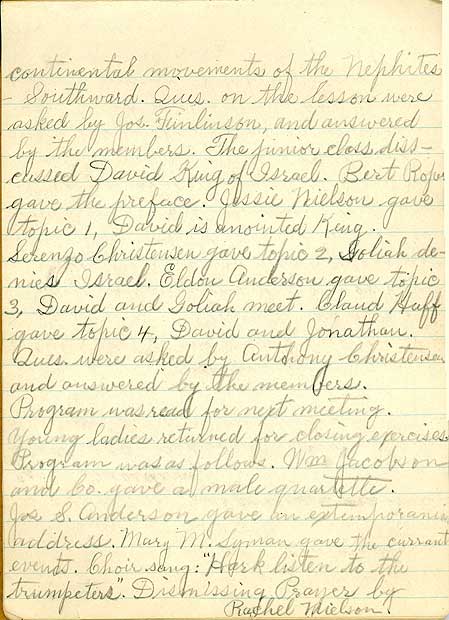 continental movements of the Nephites
- Southward. Ques. on the lesson were
asked by Jos. Finlinson, and answered
by the members. The junior class diss-
cussed David King of Israel. Bert Roper
gave the preface. Jessie Nielson gave
topic 1, David is anointed King.
Serenzo Christensen gave topic 2, Goliah de-
nies Israel. Eldon Anderson gave topic
3, David and Goliah meet. Claud Huff
gave topic 4, David and Jonathan.
Ques. were asked by Anthony Christensen
and answered by the members.
Program was read for next meeting.
Young ladies returned for closing exercises.
Program was as follows. Wm Jacobson
and Co. gave a male quartette.
Jos S. Anderson gave an extemporanious
address. Mary M. Lyman gave the currant
events. Choir sang: "Hark listen to the
trumpeters". Dismissing Prayer by
Rachel Nielson.